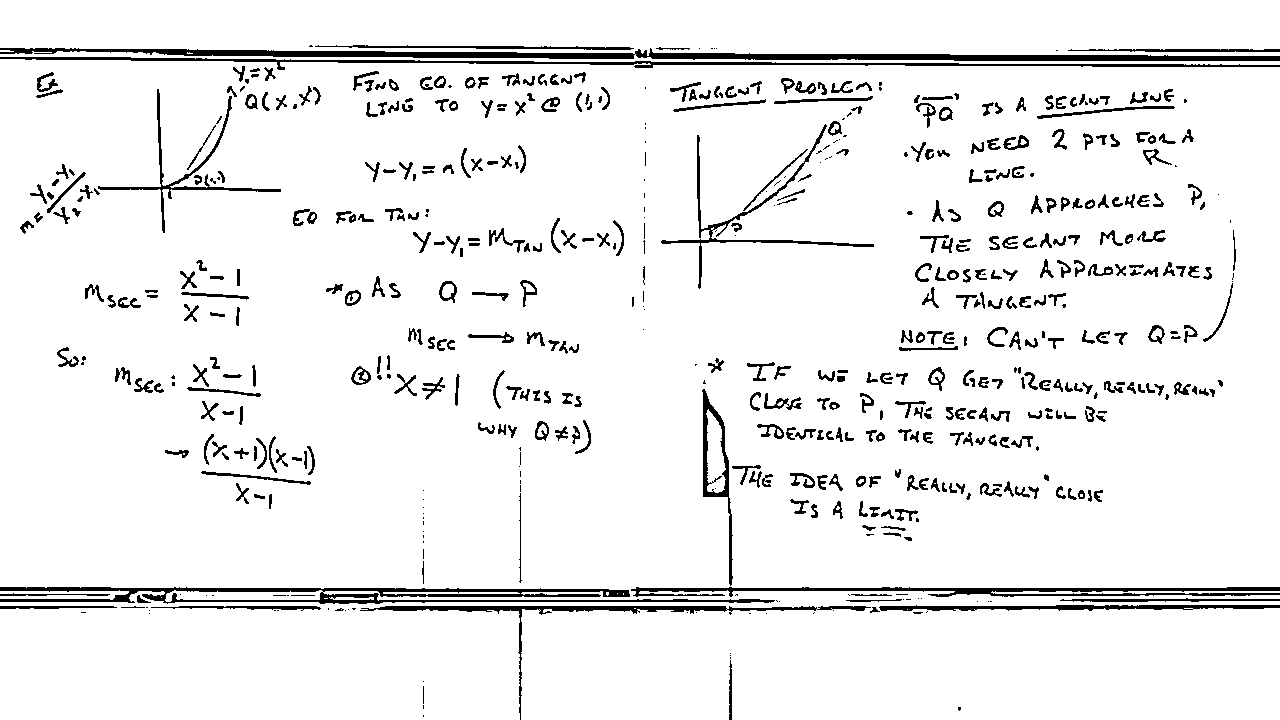 Ex
Y=X²
Q(X,X²)
P(1,1)
1
m = Y₂-Y₁/X₂-X₁
m_SEC = X²-1/X-1
SO:
m_SEC: X²-1/X-1
→ (X+1)(X-1)/X-1
FIND EQ. OF TANGENT
LINE TO Y=X² @ (1,1)
Y-Y₁ = m(X-X₁)
EQ FOR TAN:
Y-Y₁ = M_TAN (X-X₁)
* ① AS Q → P
m_SEC → m_TAN
② !! X≠1 (THIS IS
WHY Q≠P)
TANGENT PROBLEM:
Q
P
PQ IS A SECANT LINE.
• YOU NEED 2 PTS FOR A
LINE.
• AS Q APPROACHES P,
THE SECANT MORE
CLOSELY APPROXIMATES
A TANGENT.
NOTE: CAN'T LET Q=P
* IF WE LET Q GET "REALLY, REALLY, REALLY"
CLOSE TO P, THE SECANT WILL BE
IDENTICAL TO THE TANGENT.
THE IDEA OF "REALLY, REALLY" CLOSE
IS A LIMIT.